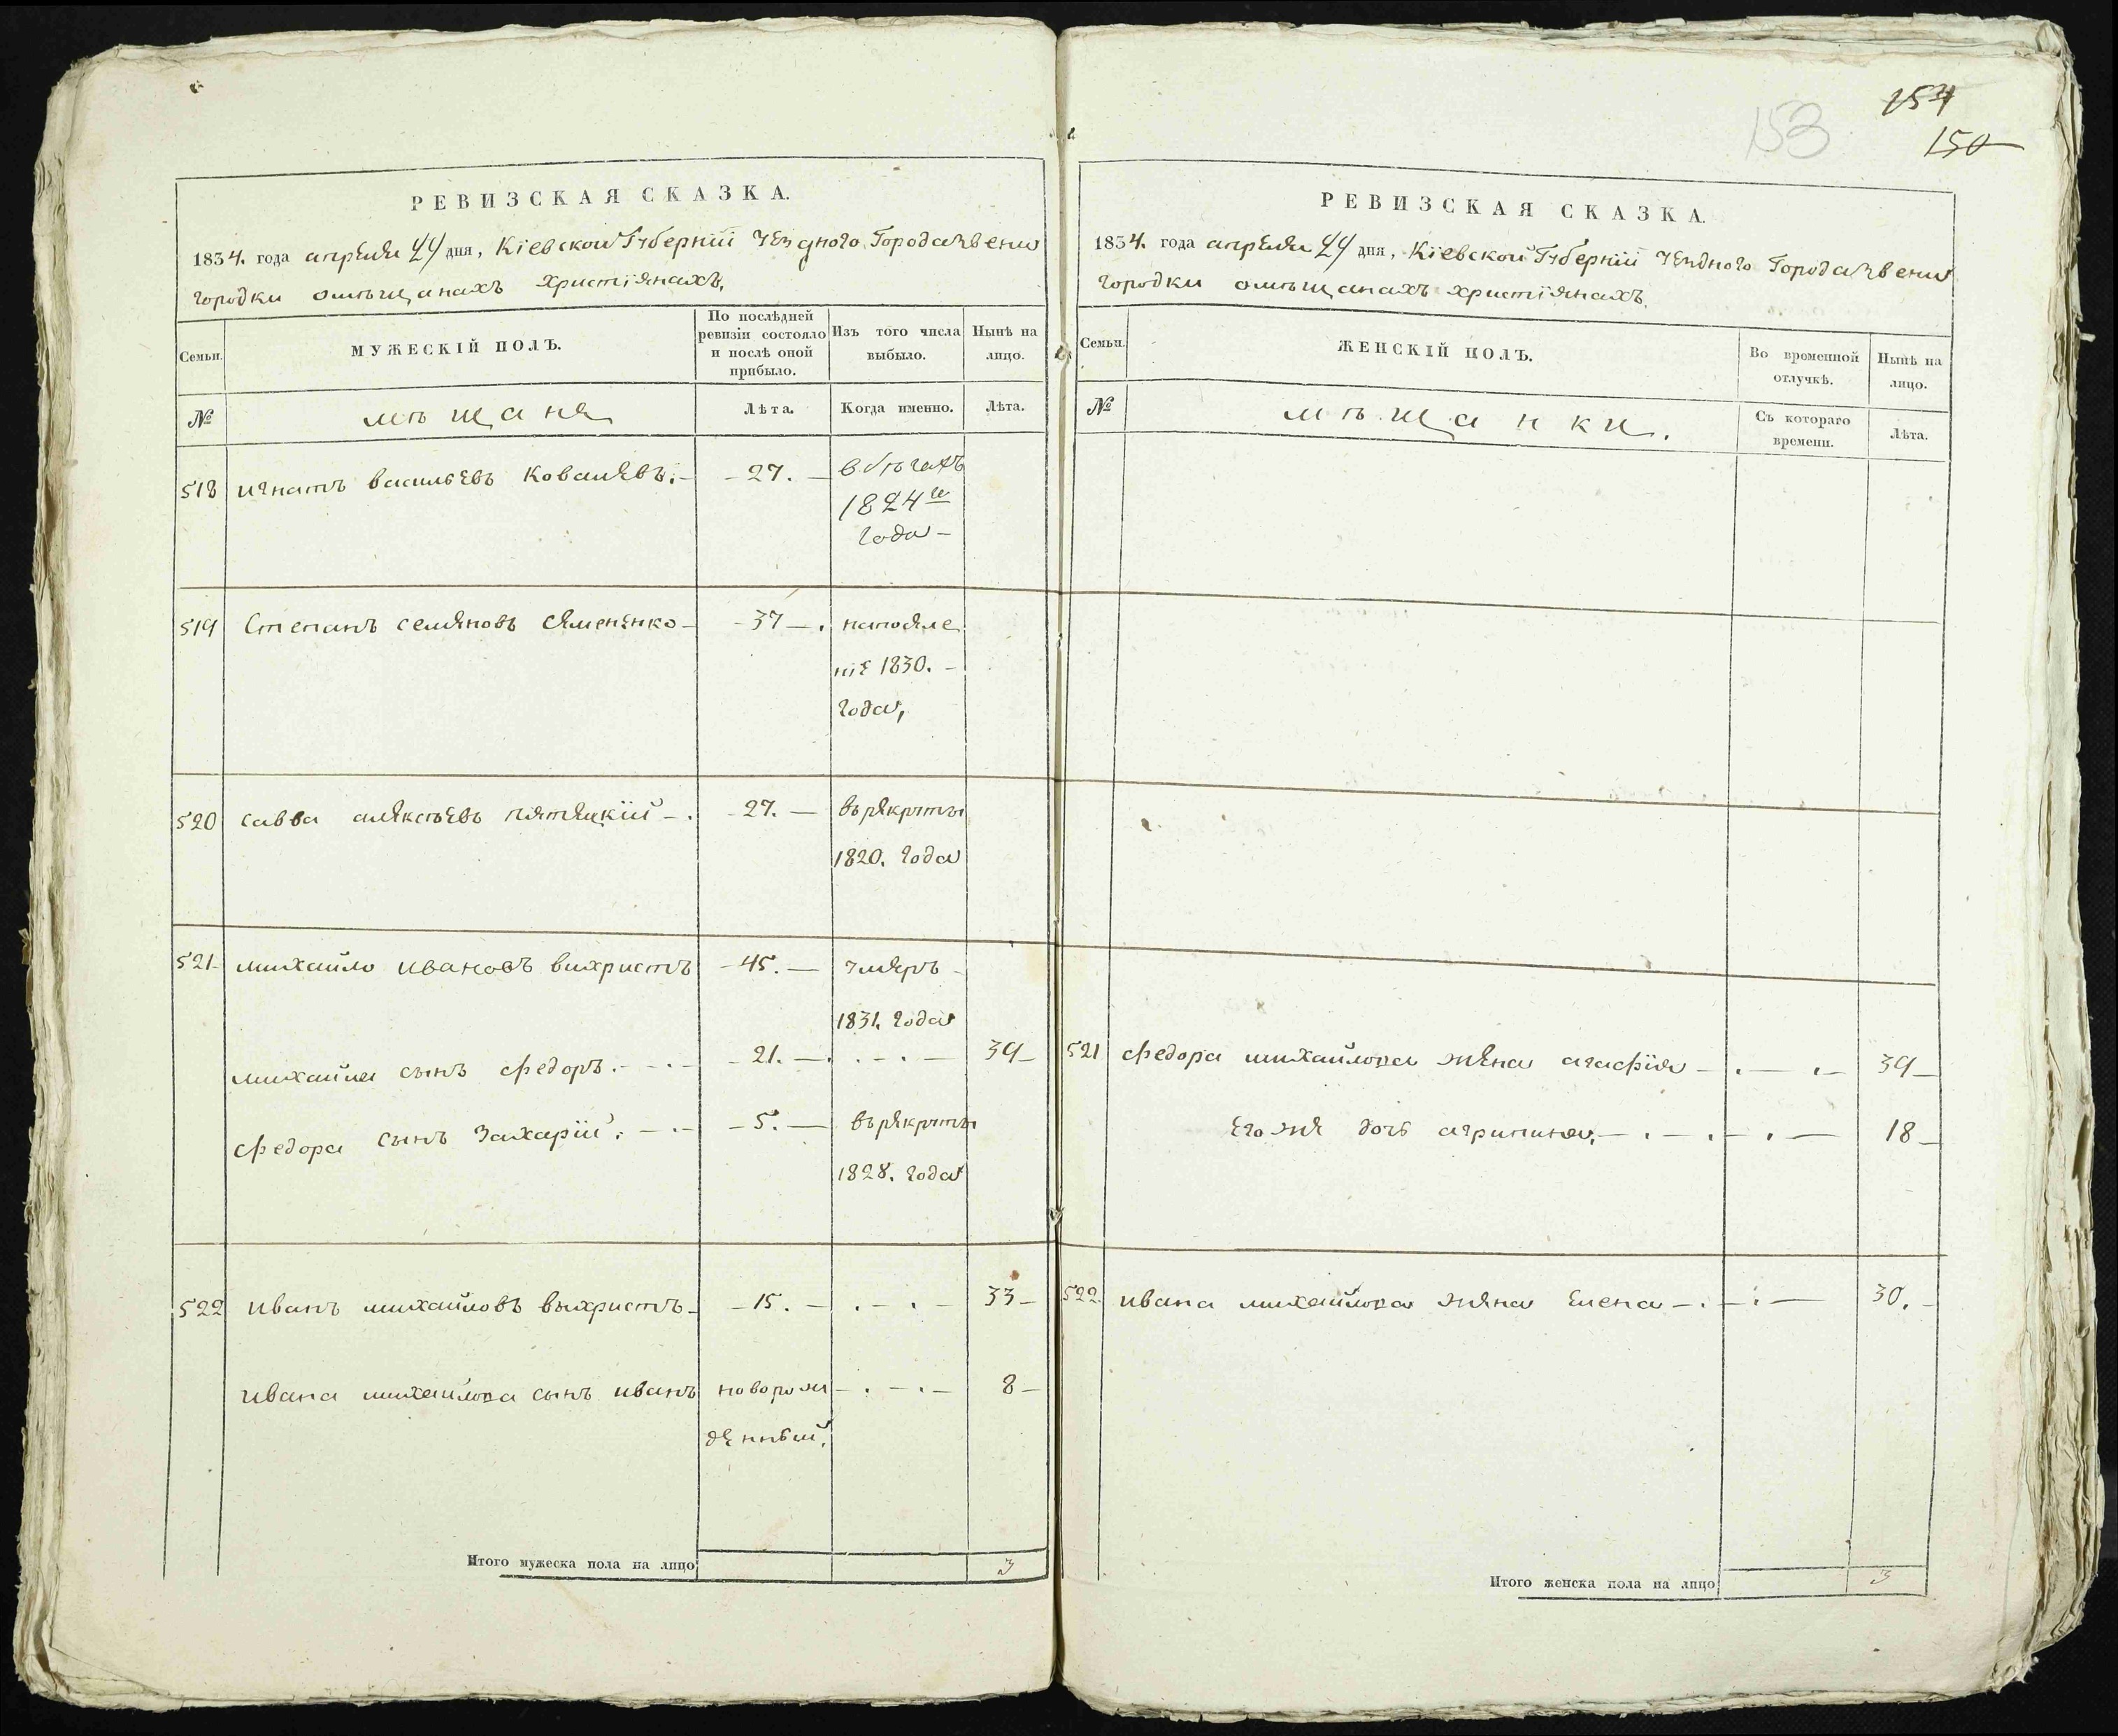 РЕВИЗСКАЯ СКАЗКА.
1834. года апреля 24 дня, Кіевской Губерніи уезднаго Города Звени
городки о мѣщанахъ христіянахъ,
Семьи.
МУЖЕСКІЙ ПОЛЪ.
По послѣдней ревизіи состояло и послѣ оной прибыло.
Изъ того числа выбыло.
Нынѣ на лицо.
№
мѣщане
Лѣта.
Когда именно.
Лѣта.
518 игнатъ васильевъ Ковалевъ. 27. в бѣгахъ
1824го
года
519 Степанъ семяновъ семененко 37
1830.
года,
520 савва алексѣевъ 27. въ рекруты
1820. года
521 михайло ивановъ вихристъ 45. умеръ
1831. года
михайлы сынъ федоръ. 21. 39
федора сынъ Захарій. 5. въ рекруты
1828. года
522 иванъ михайловъ выхристъ 15. 33
ивана михайлова сынъ иванъ новорож 8
денный,
Итого мужеска пола на лицо 3
153
154
150
РЕВИЗСКАЯ СКАЗКА.
1834. года апреля 24 дня, Кіевской Губерніи уезднаго Города Звени
городки о мѣщанахъ христіянахъ.
Семьи.
ЖЕНСКІЙ ПОЛЪ.
Во временной отлучкѣ.
Нынѣ на лицо.
№
мѣщанки.
Съ котораго времени.
Лѣта.
521 федора михайлова жена агафія 39
Его же дочь агрипина, 18
522 ивана михайлова жена Елена 30.
Итого женска пола на лицо 3